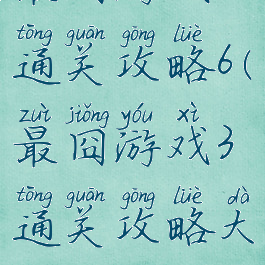 tōng guān gōng lüè
通关攻略6(
zuì jiǒng yóu xì
最囧游戏3
tōng guān gōng lüè dà
通关攻略大